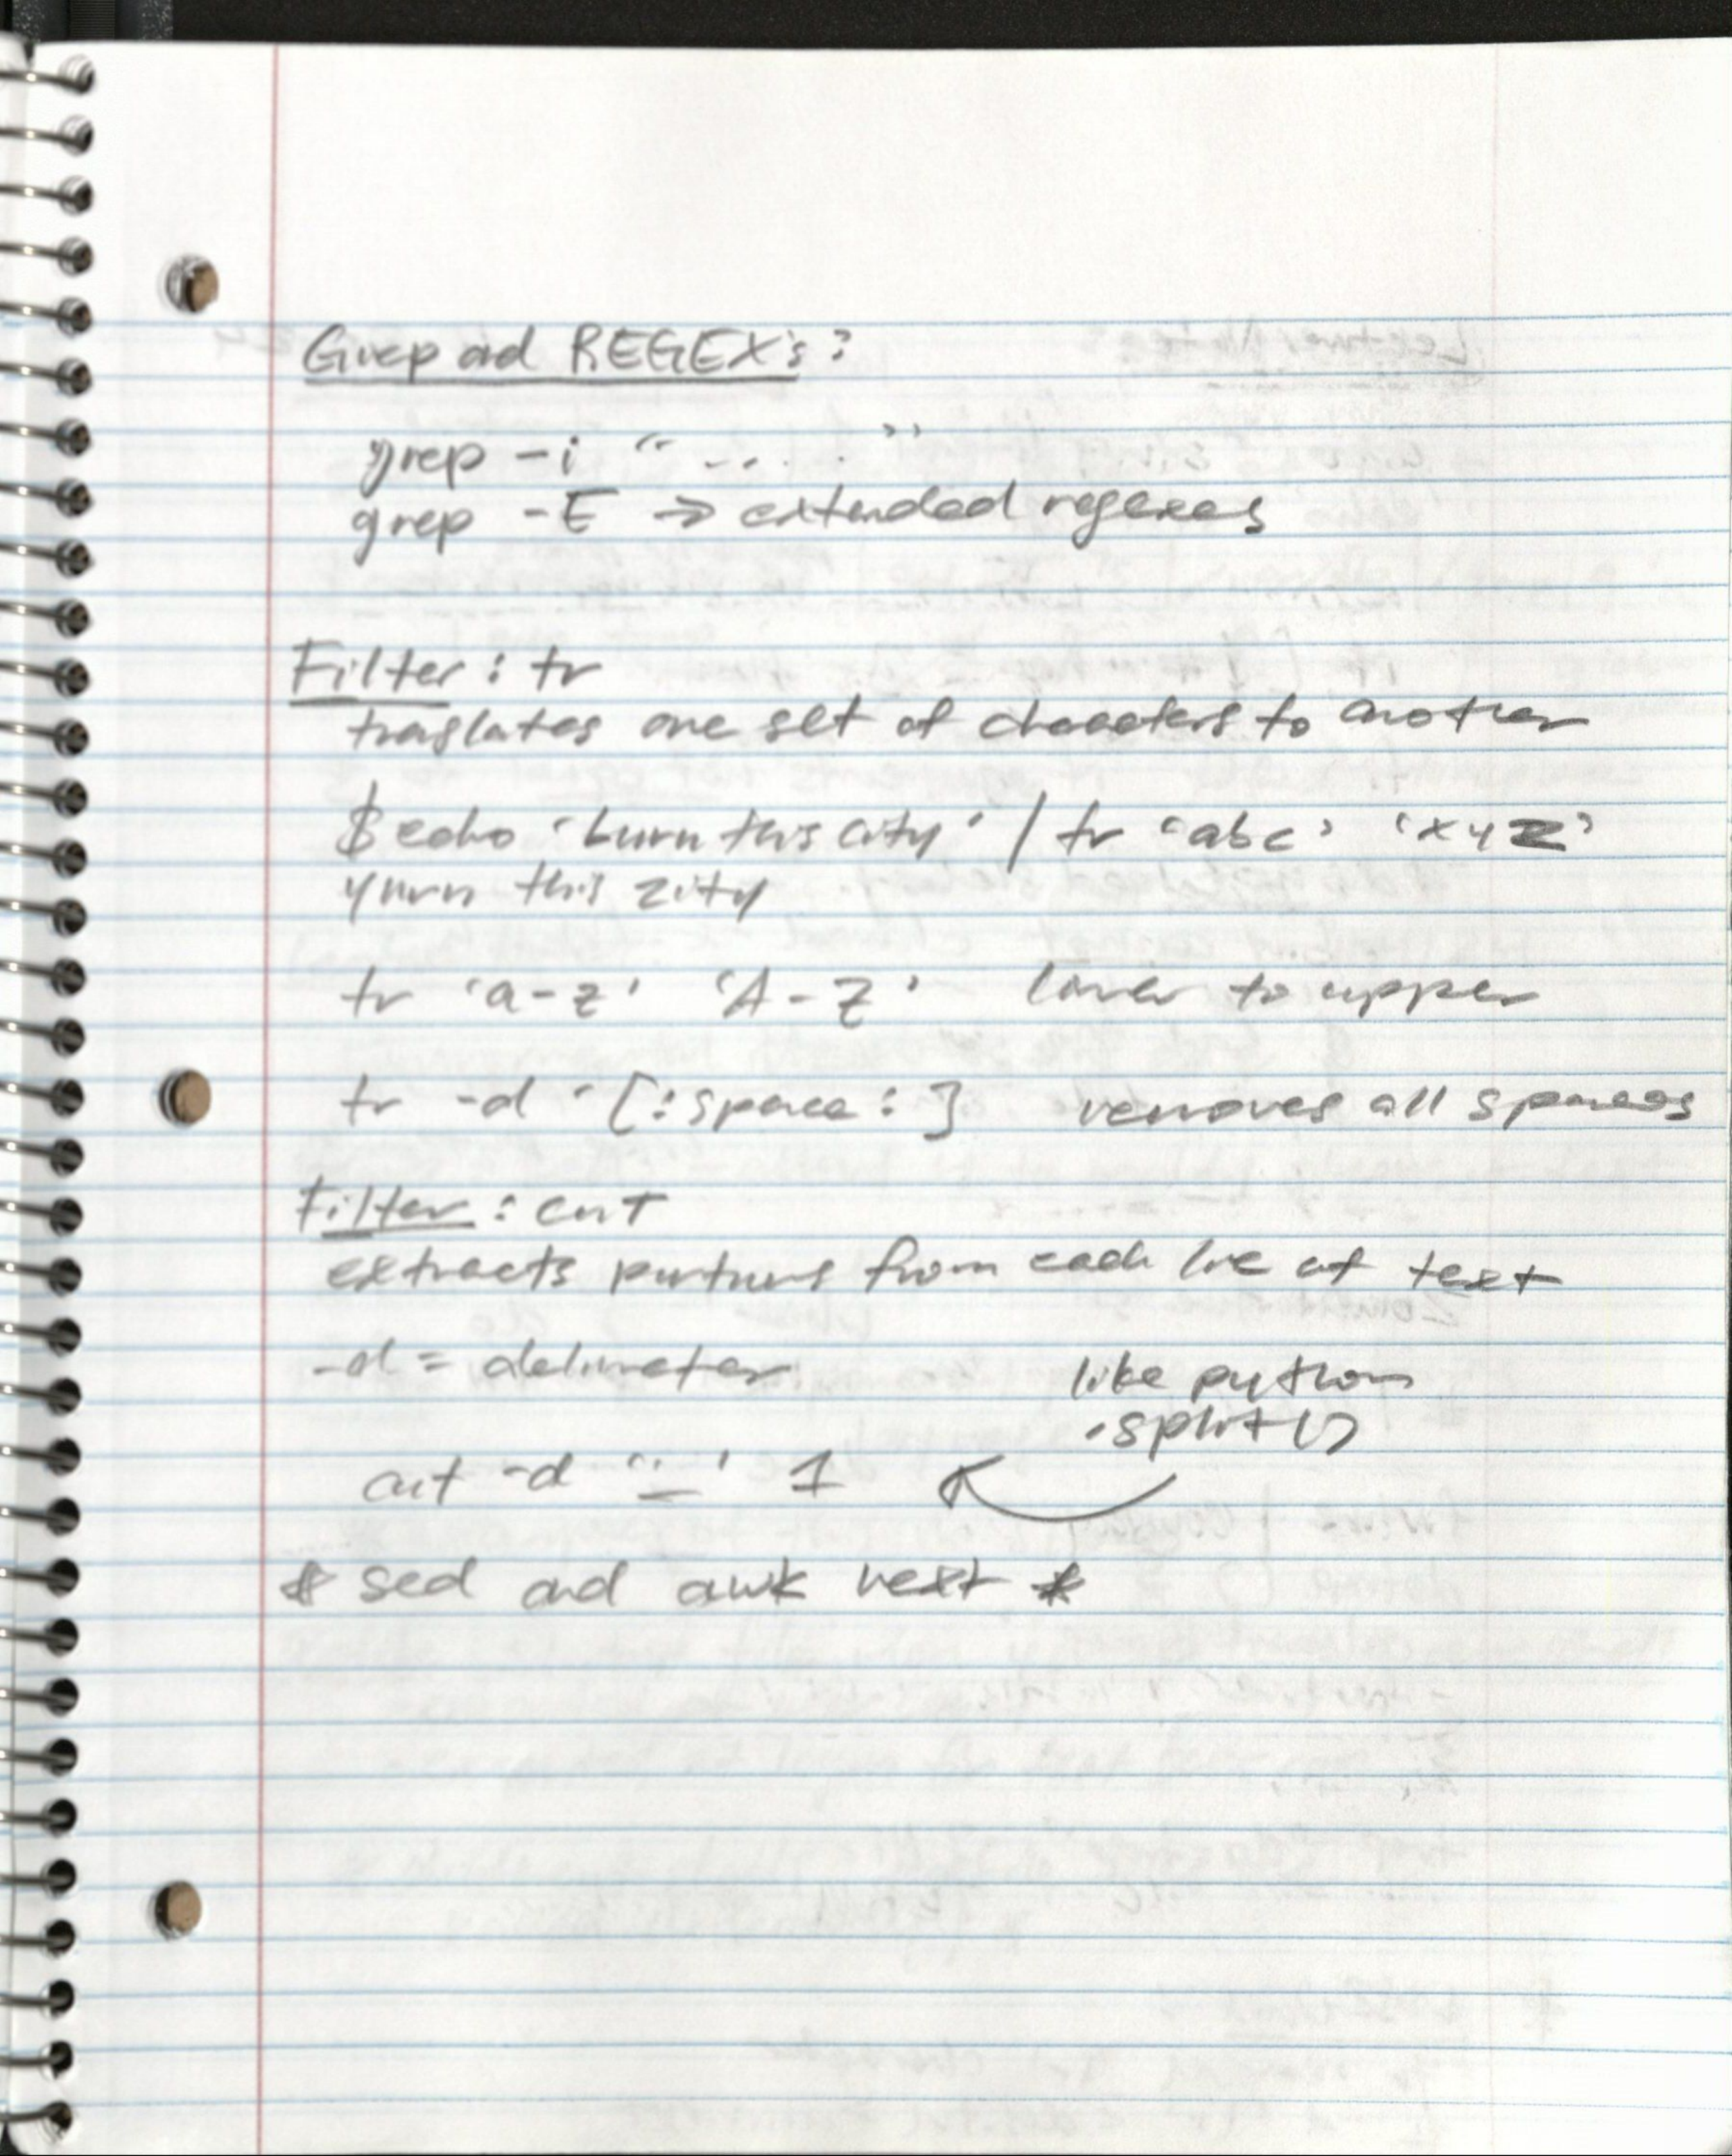 Grep and REGEX's:
grep -i " .... "
grep -E → extended regexes
Filter: tr
traslates one set of characters to another
$ echo 'burn this city' | tr 'abc' 'xyz'
yurn this zity
tr 'a-z' 'A-Z' lower to upper
tr -d '[:space:] removes all spaces
Filter: cut
extracts portions from each line of text
-d = delimeter
like python
.split()
cut -d ' 1
* sed and awk next *